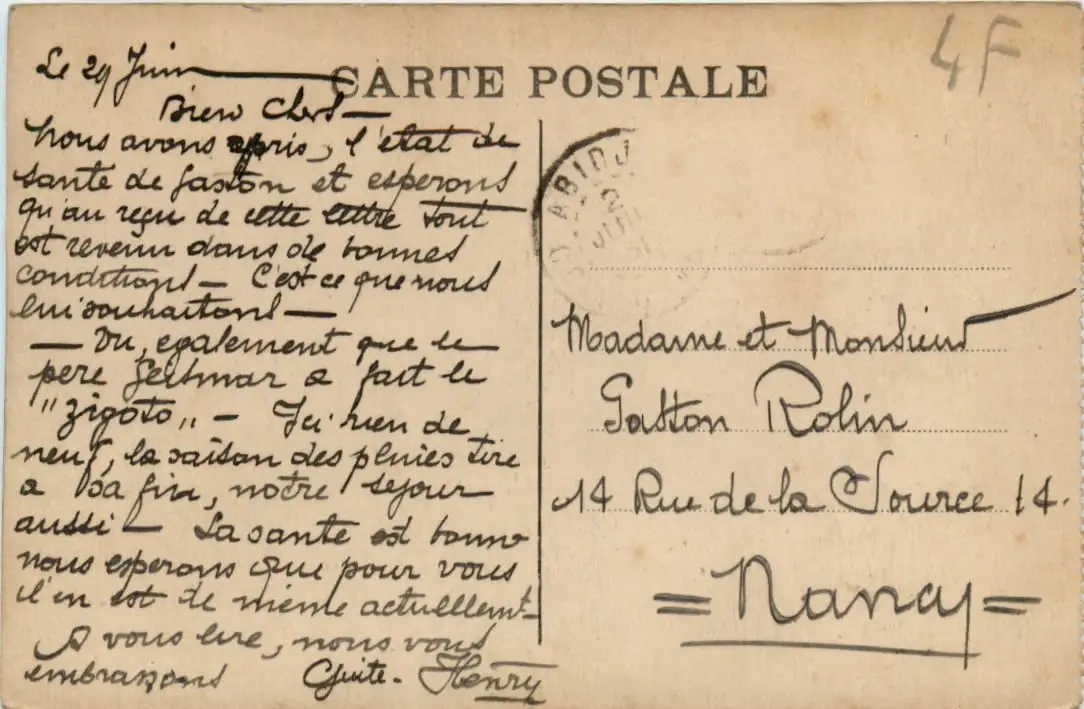 4F
CARTE POSTALE
Le 29 Juin
Bien Chers —
Nous avons appris, l'état de
sante de Gaston et esperons
qu'au reçu de cette lettre tout
est revenu dans de bonnes
conditions — C'est ce que nous
lui souhaitons —
— Vu, egalement que le
pere a fait le
"Zigoto" — Ici rien de
neuf, la saison des pluies tire
a sa fin, notre sejour
aussi — La sante est bonne
nous esperons que pour vous
il en est de même actuellemt —
A vous lire, nous vous
embrassons Guite - Henry
ABIDJ
2
JUI
Madame et Monsieur
Gaston Robin
14 Rue de la Source 14.
= Nancy =